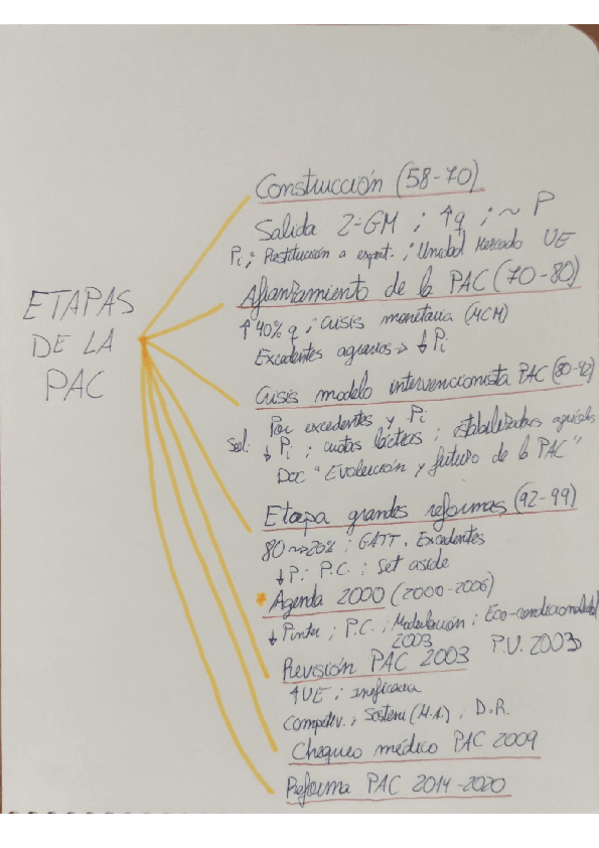 ETAPAS
DE LA
PAC
Construcción (58-70)
Salida 2ª GM ; ↑q ; ~ P
Pi ; Restitución a export. ; Unidad Mercado UE
Afianzamiento de la PAC (70-80)
↑40% q ; Crisis monetaria (MCM)
Excedentes agrarios → ↓ Pi
Crisis modelo intervencionista PAC (80-92)
Por excedentes y Pi
Sol: ↓ Pi ; cuotas lácteas ; estabilizadores agrícolas
Doc "Evolución y futuro de la PAC"
Etapa grandes reformas (92-99)
80 ~> 20% ; GATT . Excedentes
↓ Pi P.C. ; Set aside
* Agenda 2000 (2000-2006)
↓ Pinter ; P.C. ; Modulación ; Eco-condicionalidad
2003 P.U. 2003
Revisión PAC 2003
↑UE ; ineficacia
Competitiv. ; Sosteni (M.A.) ; D.R.
Chequeo médico PAC 2009
Reforma PAC 2014-2020